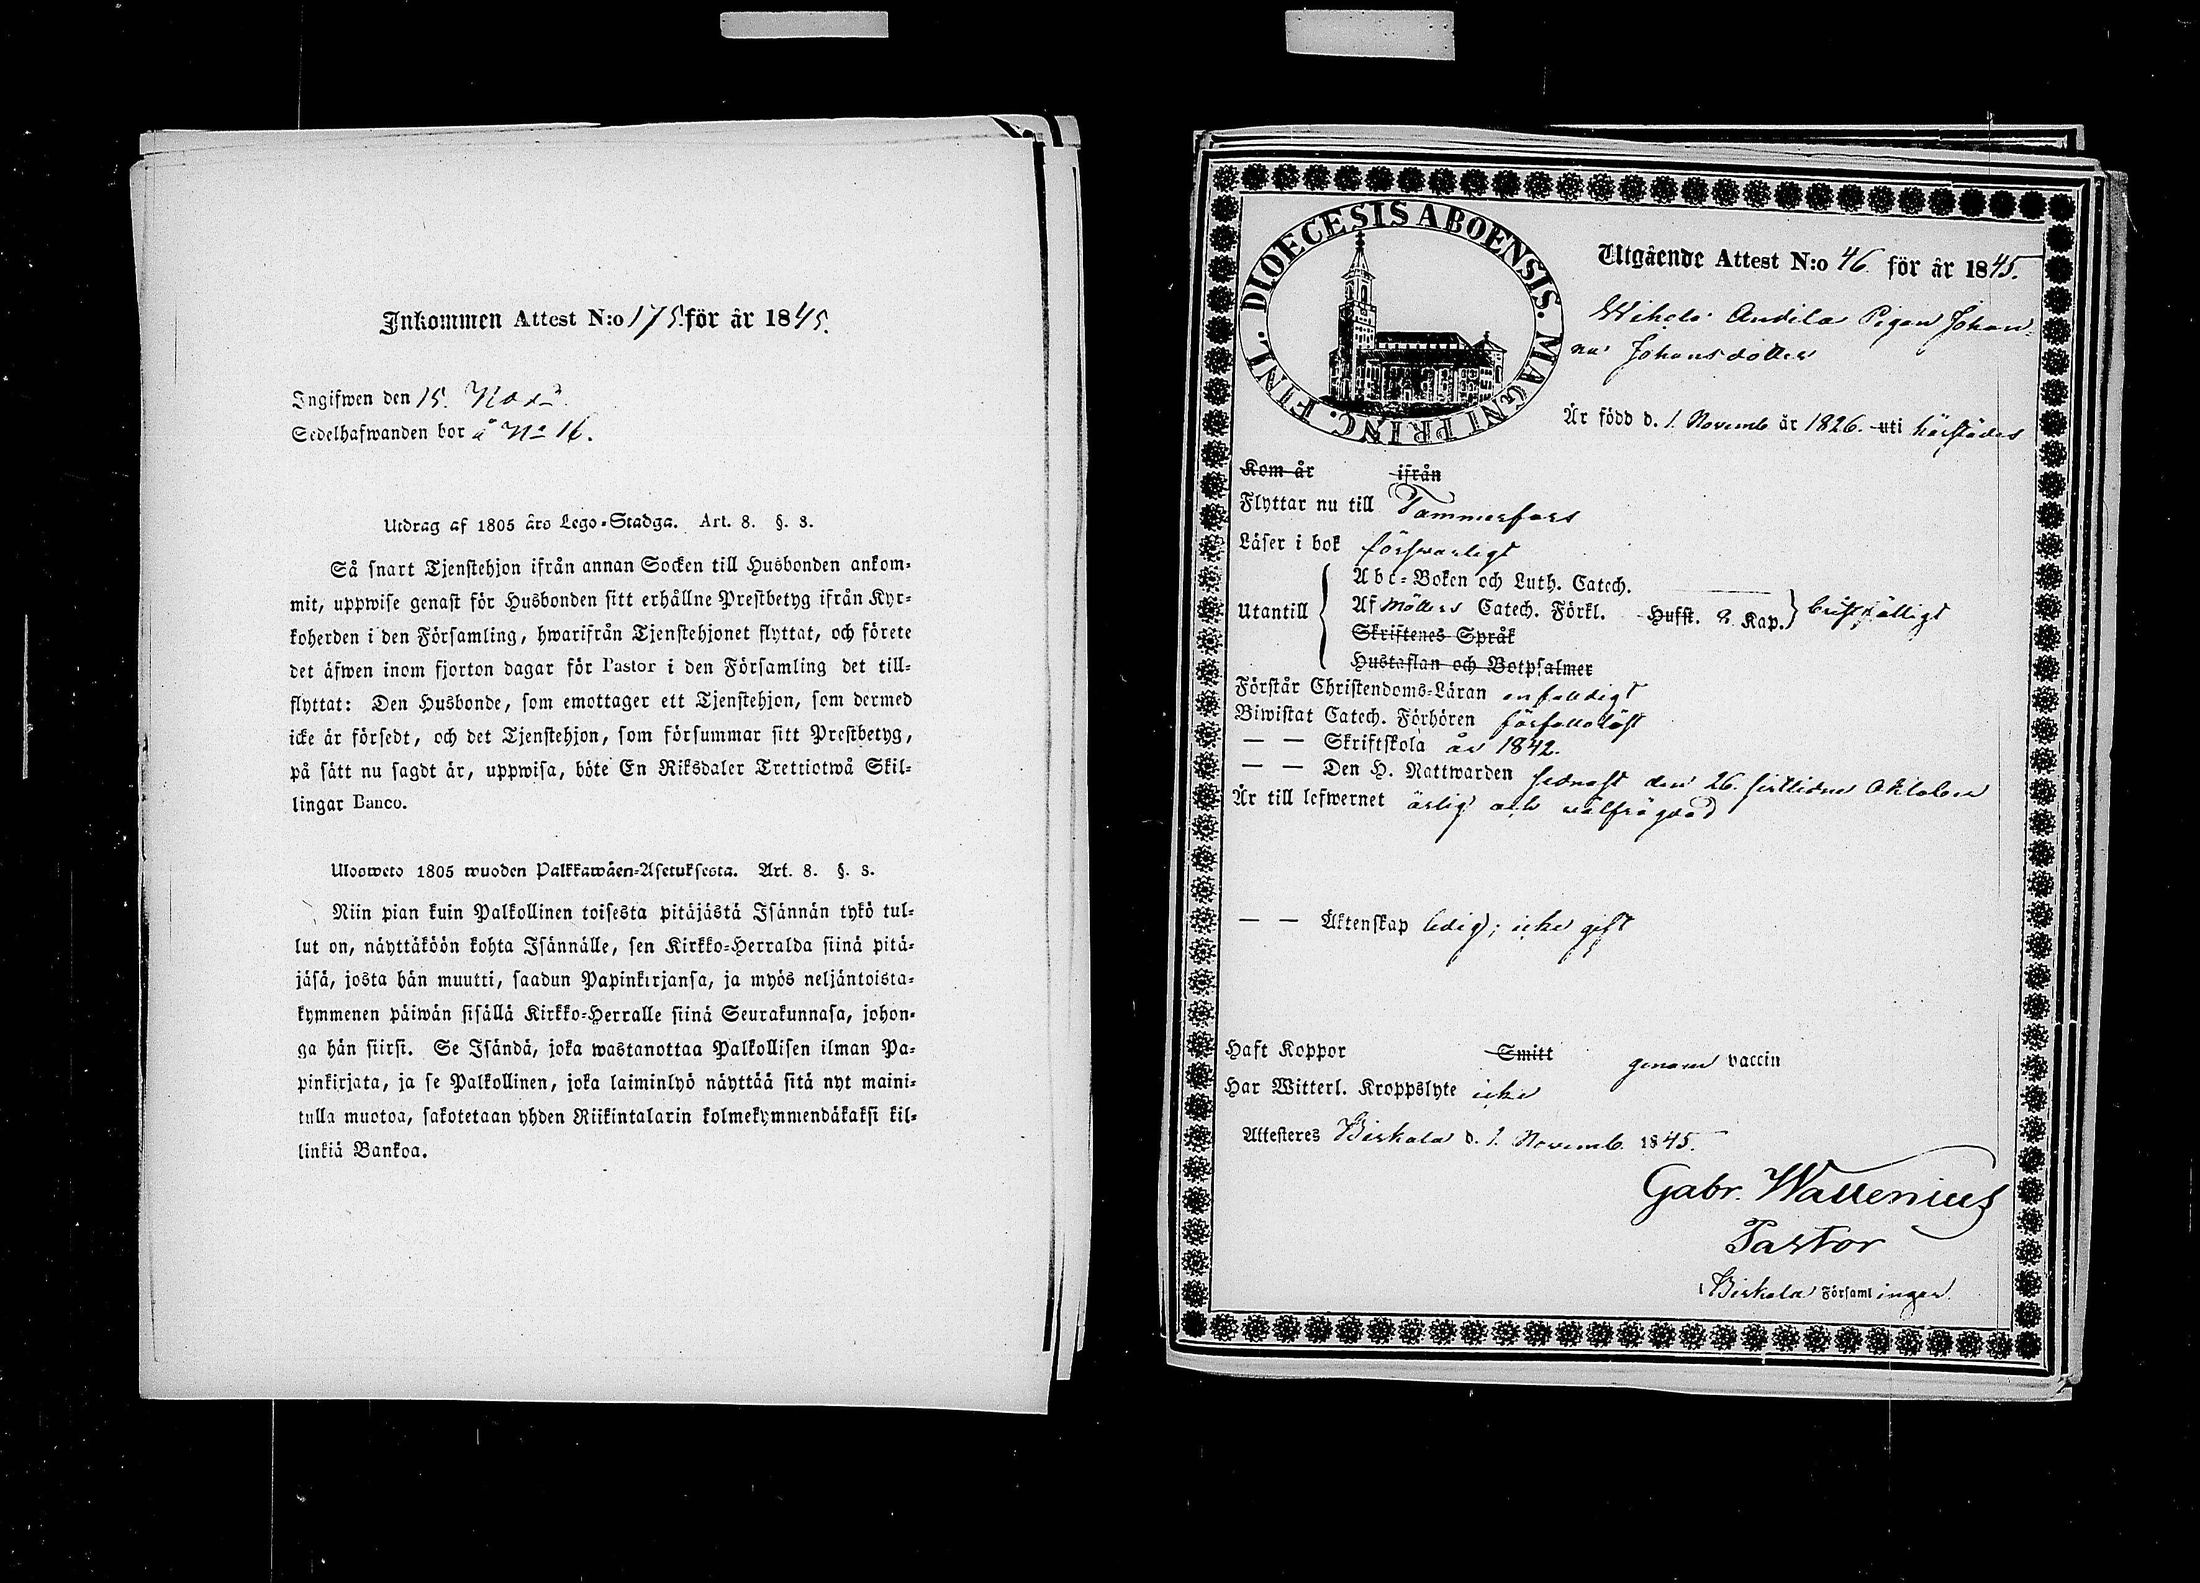 Inkommen Attest N:o 175. för år 1845.
Ingifwen den 15. Nov.
Sedelhafwanden bor å No 16.
Utdrag af 1805 års Lego-Stadga. Art. 8. §. 8.
Så snart Tjenstehjon ifrån annan Socken till Husbonden ankom-
mit, uppwise genast för Husbonden sitt erhållne Prestbetyg ifrån Kyr-
koherden i den Församling, hwarifrån Tjenstehjonet flyttat, och förete
det äfwen inom fjorton dagar för Pastor i den Församling det till-
flyttat: Den Husbonde, som emottager ett Tjenstehjon, som dermed
icke är försedt, och det Tjenstehjon, som försummar sitt Prestbetyg,
på sätt nu sagdt är, uppwisa, böte En Riksdaler Trettiotwå Skil-
lingar Banco.
Ulosweto 1805 wuoden Palkkawäen-Asetuksesta. Art. 8. §. 8.
Niin pian kuin Palkollinen toisesta pitäjästä Isännän tykö tul-
lut on, näyttäköön kohta Isännälle, sen Kirkko-Herralda siinä pitä-
jäsä, josta hän muutti, saadun Papinkirjansa, ja myös neljäntoista-
kymmenen päiwän sisällä Kirkko-Herralle siinä Seurakunnasa, johon-
ga hän siirsi. Se Isändä, joka wastanottaa Palkollisen ilman Pa-
pinkirjata, ja se Palkollinen, joka laiminlyö näyttää sitä nyt maini-
tulla muotoa, sakotetaan yhden Riikintalarin kolmekymmendäkaksi kil-
linkiä Bankoa.
DIOECESIS ABOENSIS. MAGNI PRINC. FINL.
Utgående Attest N:o 46. för år 1845.
Pigan Johan-
na Johansdotter
Är född d. 1. Novemb år 1826. uti härstädes
Kom år ifrån
Flyttar nu till Tammerfors
Läser i bok försvarligt
Abc-Boken och Luth. Catech.
Utantill Af Möllers Catech. Förkl. Hufst. 8 Kap. bristfälligt
Skriftenes Språk
Hustaflan och Botpsalmer
Förstår Christendoms-Läran enfaldigt
Biwistat Catech. Förhören förfallolöst
— — Skriftskola år 1842.
— — Den H. Nattwarden sednast den 26. sistlidne Oktober
Är till lefwernet ärlig och välfrägdad
— — Äktenskap ledig; icke gift
Haft Koppor Smitt genom vaccin
Har Witterl. Kroppslyte icke
Attesteres Birkala d. 1. Novemb. 1845.
Gabr. Wallenius
Pastor
Birkala Församlingar.